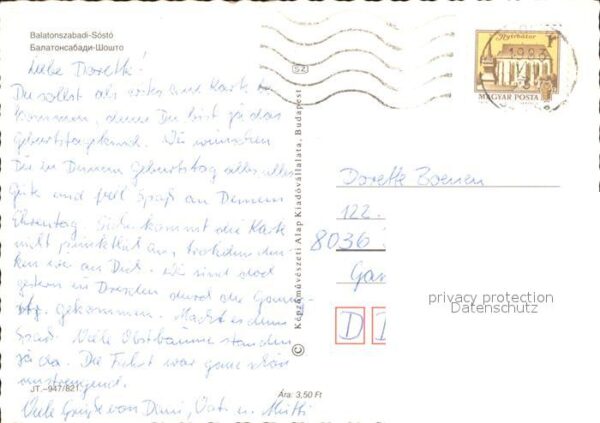 Balatonszabadi-Sóstó
Балатонсабади-Шошто
Liebe Dorette!
Du sollst als erstes eine Karte be-
kommen, denn Du bist ja das
Geburtstagskind. Wir wünschen
Dir zu Deinem Geburtstag alles alles
Gute und viel Spaß an Deinem
Ehrentag. Sicher kommt die Karte
nicht pünktlich an, trotzdem den-
ken wir an Dich. Wir sind doch
gestern in Dresden durch die
gekommen. Macht es denn
Spaß. Viele Obstbäume standen
ja da. Die Fahrt war ganz schön
anstrengend.
Viele Grüße von Vati u. Mutti
JT.-947/821
Ára: 3,50 Ft
SZ
© Képzőművészeti Alap Kiadóvállalata, Budapest
Nyírbátor
1983
MAGYAR POSTA
Dorette
122
8036
D
privacy protection
Datenschutz